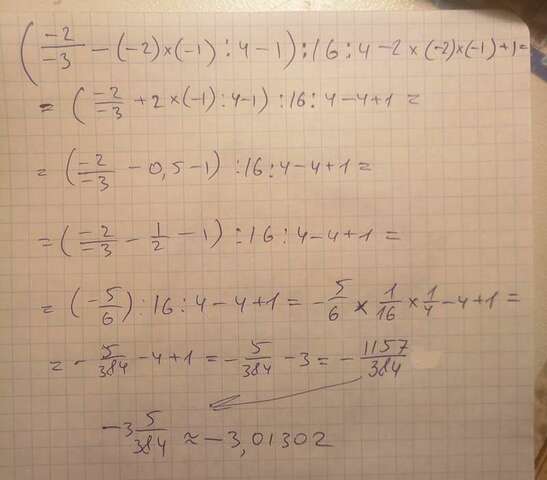 (-2/-3 - (-2)×(-1):4-1):16:4-2×(-2)×(-1)+1=
= (-2/-3 + 2×(-1):4-1):16:4-4+1=
= (-2/-3 - 0,5-1):16:4-4+1=
= (-2/-3 - 1/2 - 1):16:4-4+1=
= (-5/6):16:4-4+1= -5/6 × 1/16 × 1/4 -4+1=
= -5/384 -4+1= -5/384 -3= -1157/384
-3 5/384 ≈ -3,01302